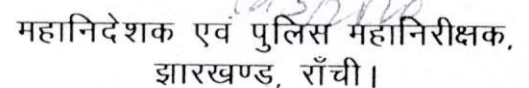 महानिदेशक एवं पुलिस महानिरीक्षक,
झारखण्ड, राँची।